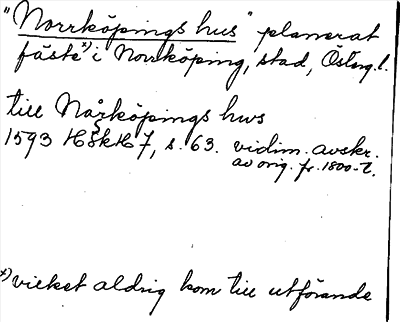 "Norrköpings hus" planerat
fäste x) i Norrköping, stad, Östergl.
till Nårköpings hws
1593 HSkH 7, s. 63. vidim. avskr.
av orig. fr. 1800-t.
x) vilket aldrig kom till utförande